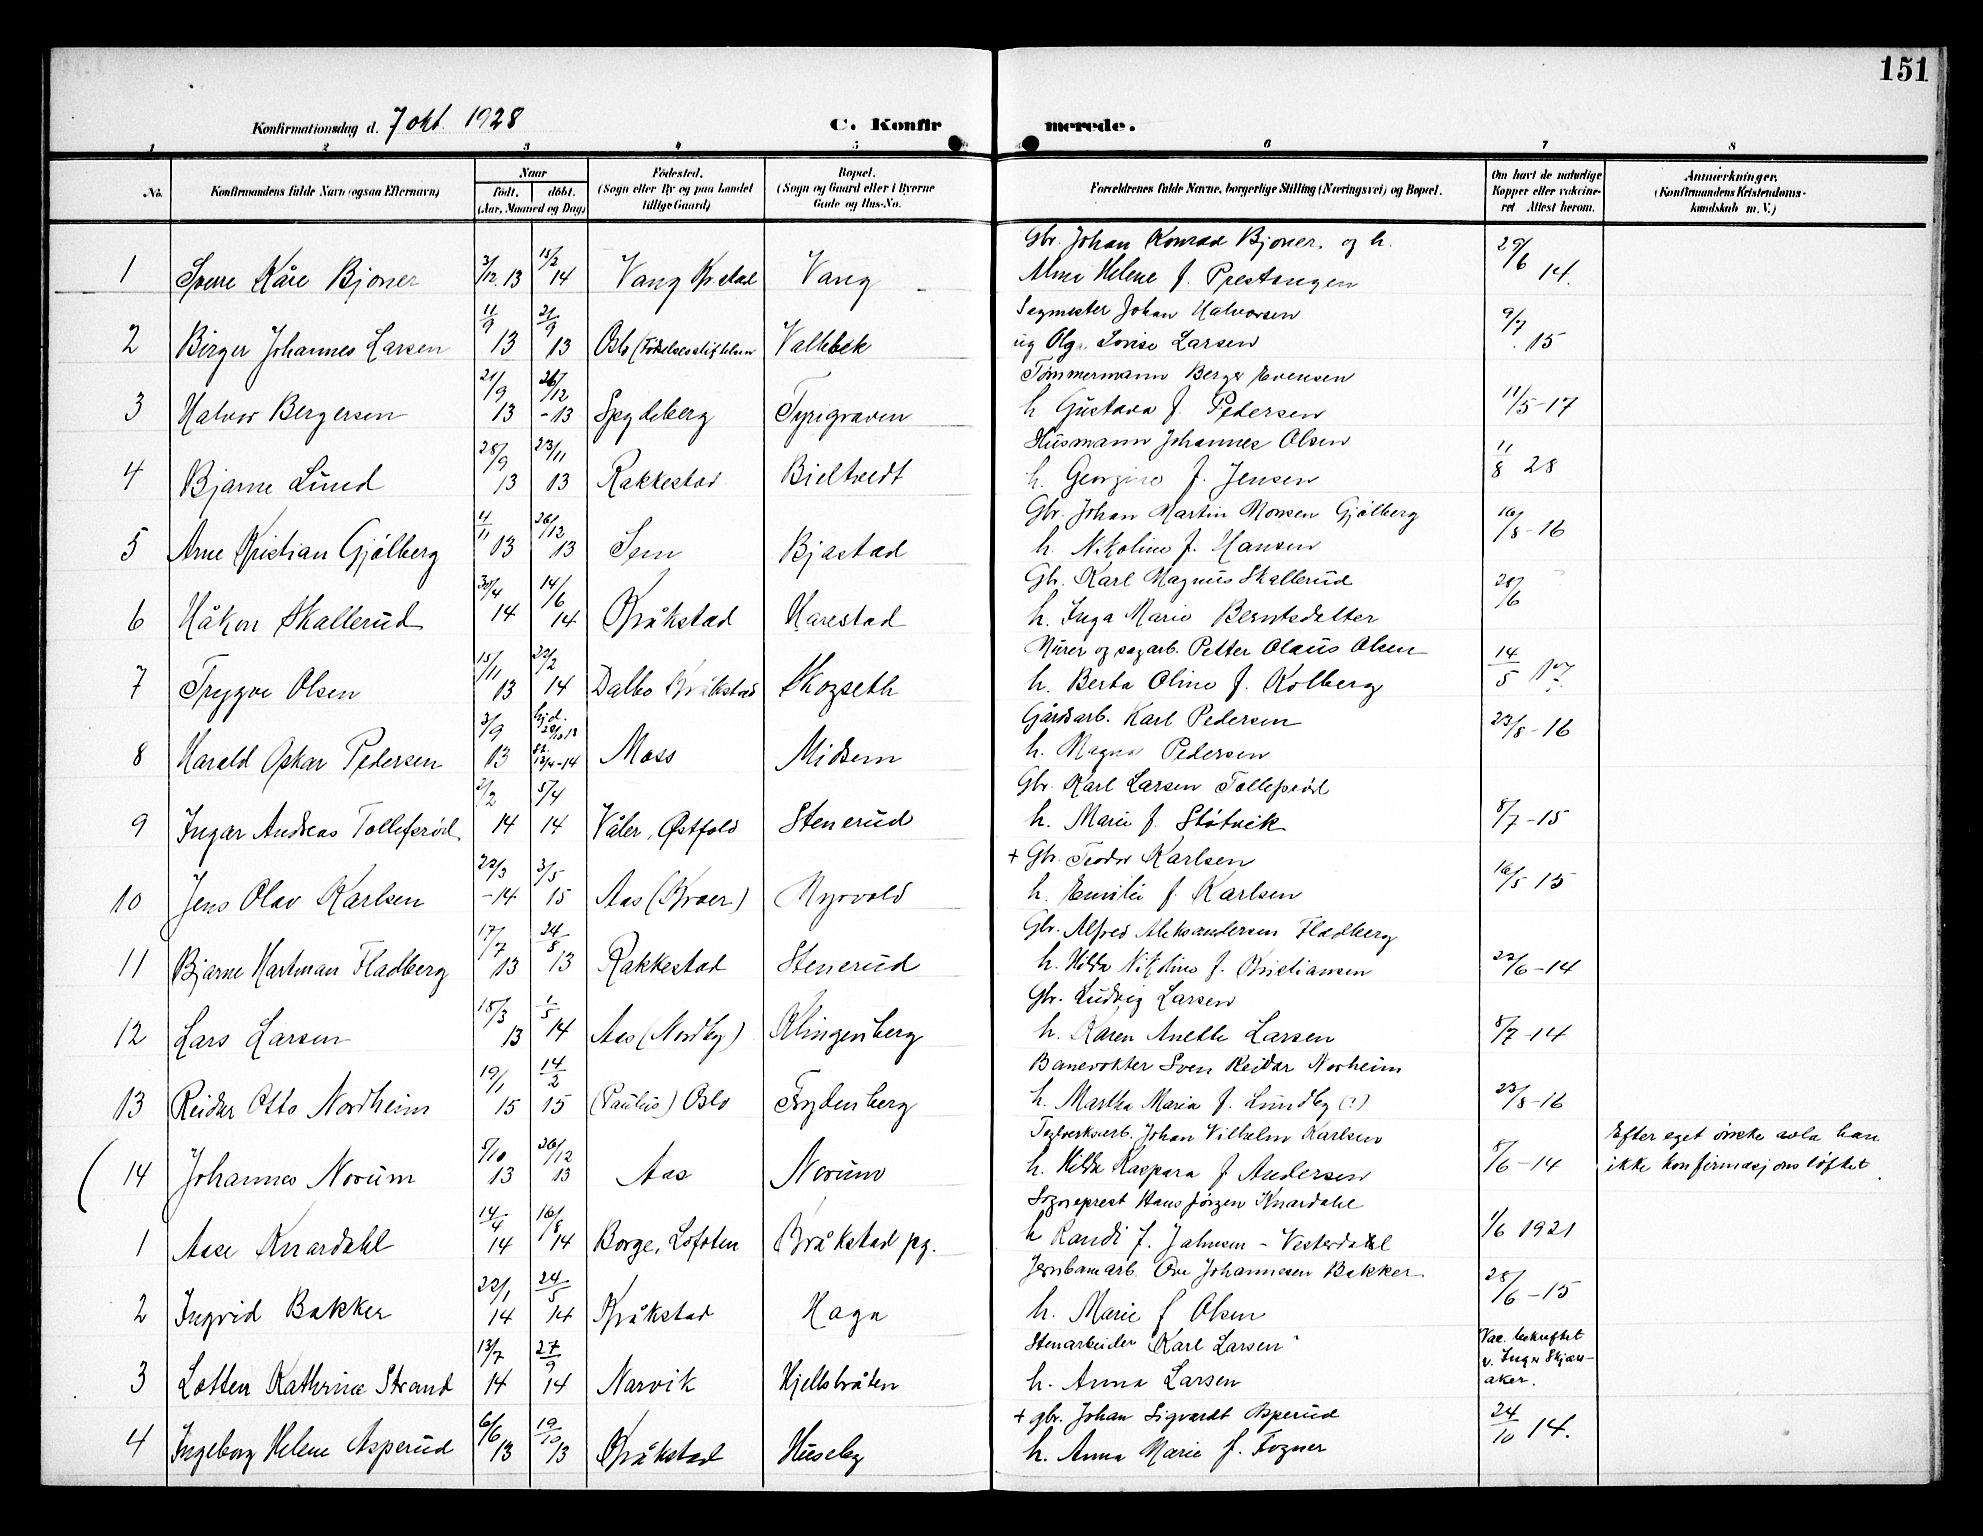 151
Konfirmationsdag d. 7 okt. 1928 C. Konfirmerede.
1 2 3 4 5 6 7 8
No. Konfirmandens fulde Navn (ogsaa Efternavn) Naar født. døbt. (Aar, Maaned og Dag) Fødested. (Sogn eller By og paa Landet tillige Gaard) Bopæl. (Sogn og Gaard eller i Byerne Gade og Hus-No. Forældrenes fulde Navne, borgerlige Stilling (Næringsvei) og Bopæl. Om havt de naturlige Kopper eller vaccineret Attest herom. Anmærkninger. (Konfirmandens Kristendomskundskab m. V.)
Gbr. Johan Konrad Bjoner. og h. 29/6
1 Sverre Kåre Bjoner 3/12. 13 11/2 14 Vang Vang Alma Helene f. Prestangen 14.
11/9 21/9 Sagmester Johan Halvorsen 9/7
2 Birger Johannes Larsen 13 13 Oslo (Fødselsstiftelsen Vallebek og Olga Lovise Larsen 15
21/9 26/12 Tømmermann Berger Evensen
3 Halvor Bergersen 13 -13 Spydeberg Tyrigraven h. Gustava f. Pedersen 11/5-17
28/9 23/11 Husmann Johannes Olsen 11/8 28
4 Bjarne Lund 13 13 Rakkestad Bjeltvedt h. Georgine f. Jensen
4/11 26/12 Gbr. Johan Martin Monsen Gjølberg 16/8-16
5 Arne Kristian Gjølberg 13 13 Sem Bjastad h. Nikoline f. Hansen
30/4 14/6 Gbr. Karl Magnus Skallerud 20/6
6 Håkon Skallerud 14 14 Kråkstad Harestad h. Inga Marie Berntsdatter
15/11 22/2 Murer og sagarb. Petter Olaus Olsen 14/5 17
7 Trygve Olsen 13 14 Dalbo Kråkstad Skogseth h. Berta Oline f. Kolberg
3/9 hjd. Gårdsarb. Karl Pedersen 23/8-16
8 Harald Oskar Pedersen 13 13/4-14 Moss Midsem h. Magna Pedersen
2/2 5/4 Gbr. Karl Larsen Tollefsrød
9 Ingar Andreas Tollefsrød 14 14 Våler, Østfold Stenerud h. Marie f. Støtvik 8/7-15
22/3 3/5 + Gbr. Teodor Karlsen
10 Jens Olav Karlsen -14 15 Aas (Kroer) Myrvold h. Emilie f. Karlsen 16/5 15
17/7 24/8 Gbr. Alfred Aleksandersen Fladberg
11 Bjarne Hartman Fladberg 13 13 Rakkestad Stenerud h. Hilda Nikoline f. Kristiansen 22/6-14
15/3 1/5 Gbr. Ludvig Larsen
12 Lars Larsen 13 14 Aas (Nordby) Klingenberg h. Karen Anette Larsen 8/7-14
19/1 14/2 Banevokter Sven Reidar Norheim
13 Reidar Otto Nordheim 15 15 (Paulus) Oslo Frydenberg h. Martha Maria f. Lundby (?) 23/8-16
5/10 26/12 Teglverksarb. Johan Vilhelm Karlsen Efter eget ønske avla han
( 14 Johannes Norum 13 13 Aas Norum h. Hilda Kaspara f Andersen 8/6-14 ikke konfirmasjonsløftet.
14/4 16/8 Sogneprest Hans Jørgen Knardahl
1 Aase Knardahl 14 14 Borge, Lofoten Kråkstad pg. h Randi f. Jahnsen - Vesterdahl 1/6 1921
22/1 24/5 Jernbanearb. Ove Johannesen Bakker 28/6-15
2 Ingrid Bakker 14 14 Kråkstad Haga h. Marie f Olsen
13/7 27/9 Stenarbeider Karl Larsen Vac. bekreftet
3 Lotten Kathrine Strand 14 14 Narvik Kjellsbråten h. Anna Larsen v. Inga Skjæraker.
6/6 19/10 + gbr. Johan Sigvardt Asperud 24/10 14.
4 Ingeborg Helene Asperud 13 13 Kråkstad Huseby h. Anna Marie f. Fogner